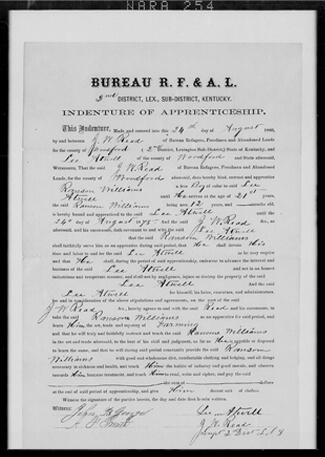 NARA 254
BUREAU R. F. & A. L.
2nd DISTRICT, LEX., SUB-DISTRICT, KENTUCKY.
INDENTURE OF APPRENTICESHIP.
This Indenture, Made and entered into this 24th day of August 1866,
by and between J W Read of Bureau Refugees, Freedmen and Abandoned Lands
for the county of Woodford, 2nd District, Lexington Sub-District State of Kentucky, and
Lee Atwell of Woodford and State aforesaid,
Witnesseth, That the said J W Read of Bureau Refugees, Freedmen and Abandoned
Lands, for the county of Woodford aforesaid, does hereby bind, contract and apprentice
Ranson Williams a Boy of color to Lee
Atwell until he arrives at the age of 21st years,
the said Ranson Williams being now 12 years, and months old,
is hereby bound and apprenticed to the said Lee Atwell
24th of August and the said J W Read, as
aforesaid, and his successors, doth covenant to and with the Lee Atwell
that the said Ranson Williams
shall faithfully serve him as an apprentice during said period, that he shall devote his
time and labor to and for the said Lee Atwell as he may require
and that he shall during the period of said apprenticeship, endeavor to advance the interest and
business of the said Lee Atwell and not in an honest
industrious and temperate manner, and shall not by negligence, injure or destroy the property of the said
Lee Atwell And the said
Lee Atwell for himself, his heirs, executors, and administrators,
for and in consideration of the above stipulations and agreements, on the part of the said
J W Read &c., hereby agrees to and with the said Read and his successors, to
take the said Ranson Williams as an apprentice for said period, and
learn Him the art, trade and mystery of Farming
and that he will truly and faithfully instruct and teach the Ranson Williams
in the art and trade aforesaid, to the best of his skill and judgment, so far as He is capable or disposed
to learn the same, and that he will during said period constantly provide the said Ranson
Williams with good and wholesome diet, comfortable clothing and lodging, and all things
necessary in sickness and health, and teach Him the habits of industry and good morals, and observe
towards Him humane treatment, and teach Him to read, write and cipher, and pay the said
dollars
at the end of said period of apprenticeship, and give Him decent suit of clothes.
Witness the signatures of the parties hereto, the day and date first herein written.
Witness:
Lee Atwell
J. W. Read